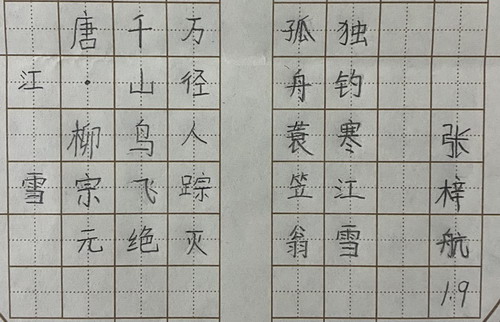 江雪
唐·柳宗元
千山鸟飞绝
万径人踪灭
孤舟蓑笠翁
独钓寒江雪
张梓航
1.9